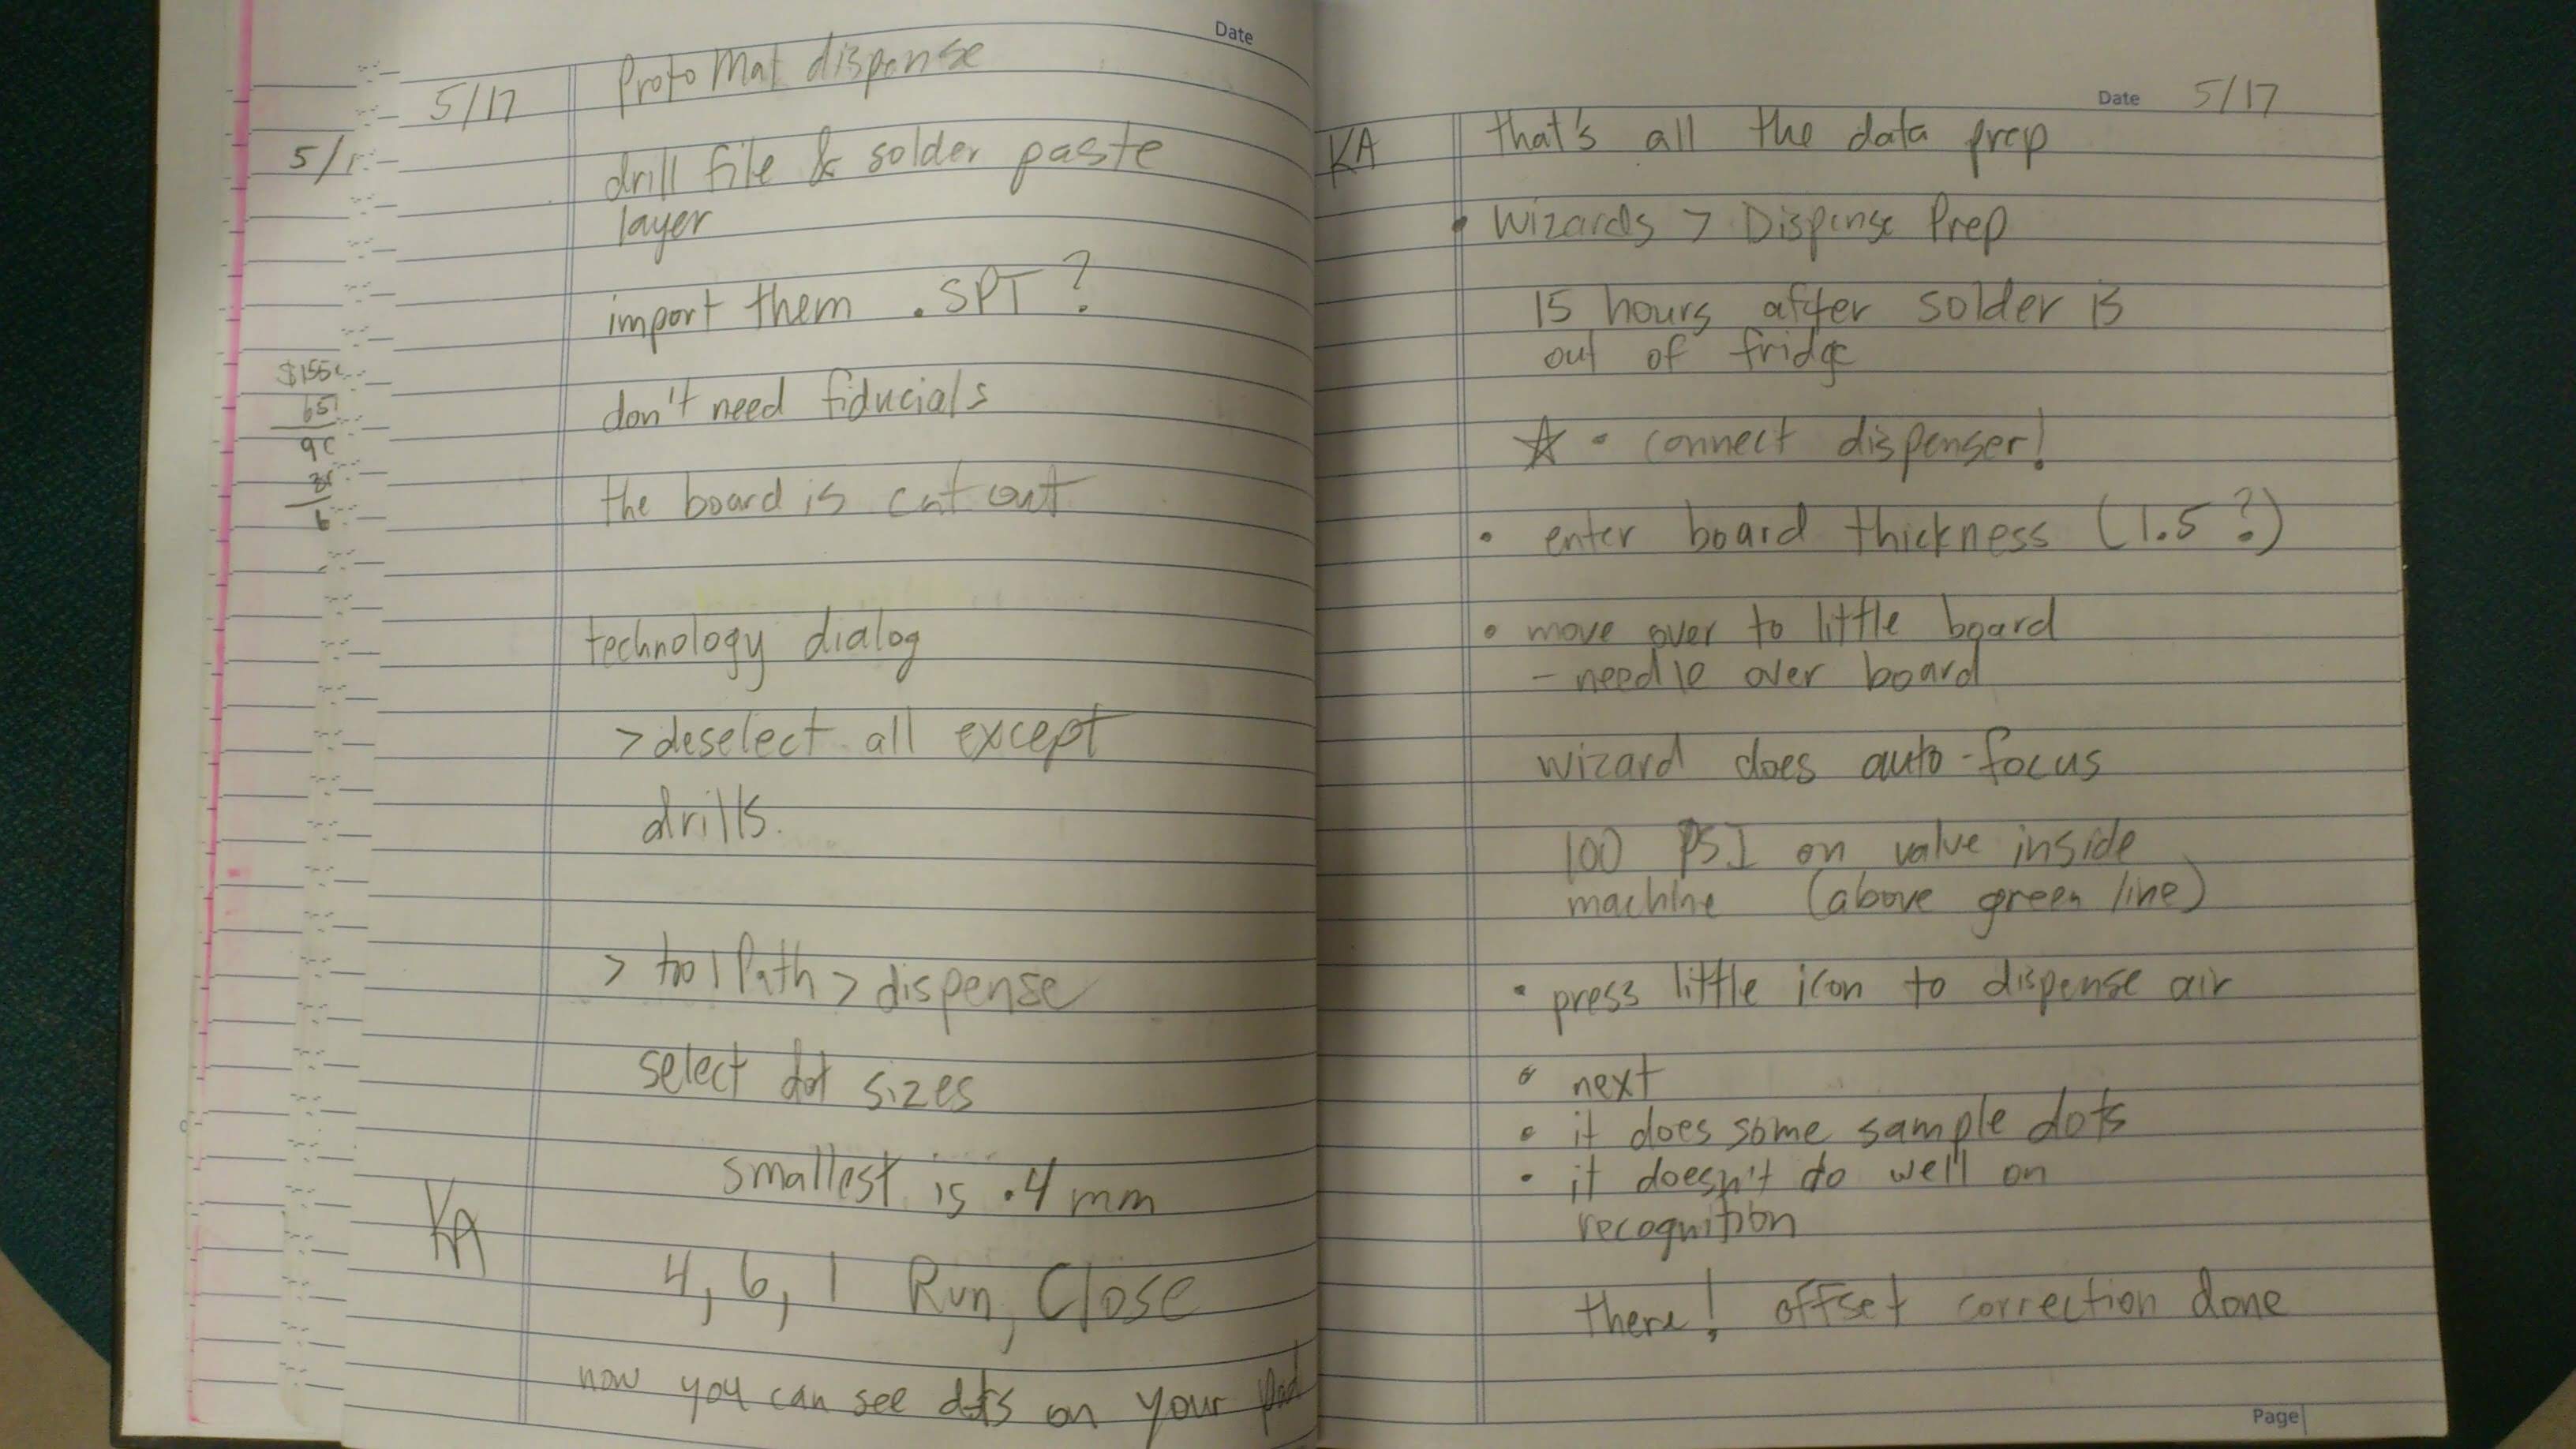 Date
5/17 ProtoMat dispense
5/
drill file & solder paste
layer
import them .SPT ?
$155
65
don't need fiducials
the board is cut out
6
technology dialog
> deselect all except
drills.
> toolPath > dispense
select dot sizes
smallest is .4 mm
KA
4, 6, 1 Run, Close
now you can see dots on your pad
Date 5/17
KA that's all the data prep
• Wizards > Dispense Prep
15 hours after solder is
out of fridge
☆ • connect dispenser!
• enter board thickness (1.5 ?)
• move over to little board
- needle over board
wizard does auto-focus
100 PSI on valve inside
machine (above green line)
• press little icon to dispense air
• next
• it does some sample dots
• it doesn't do well on
recognition
there! offset correction done
Page